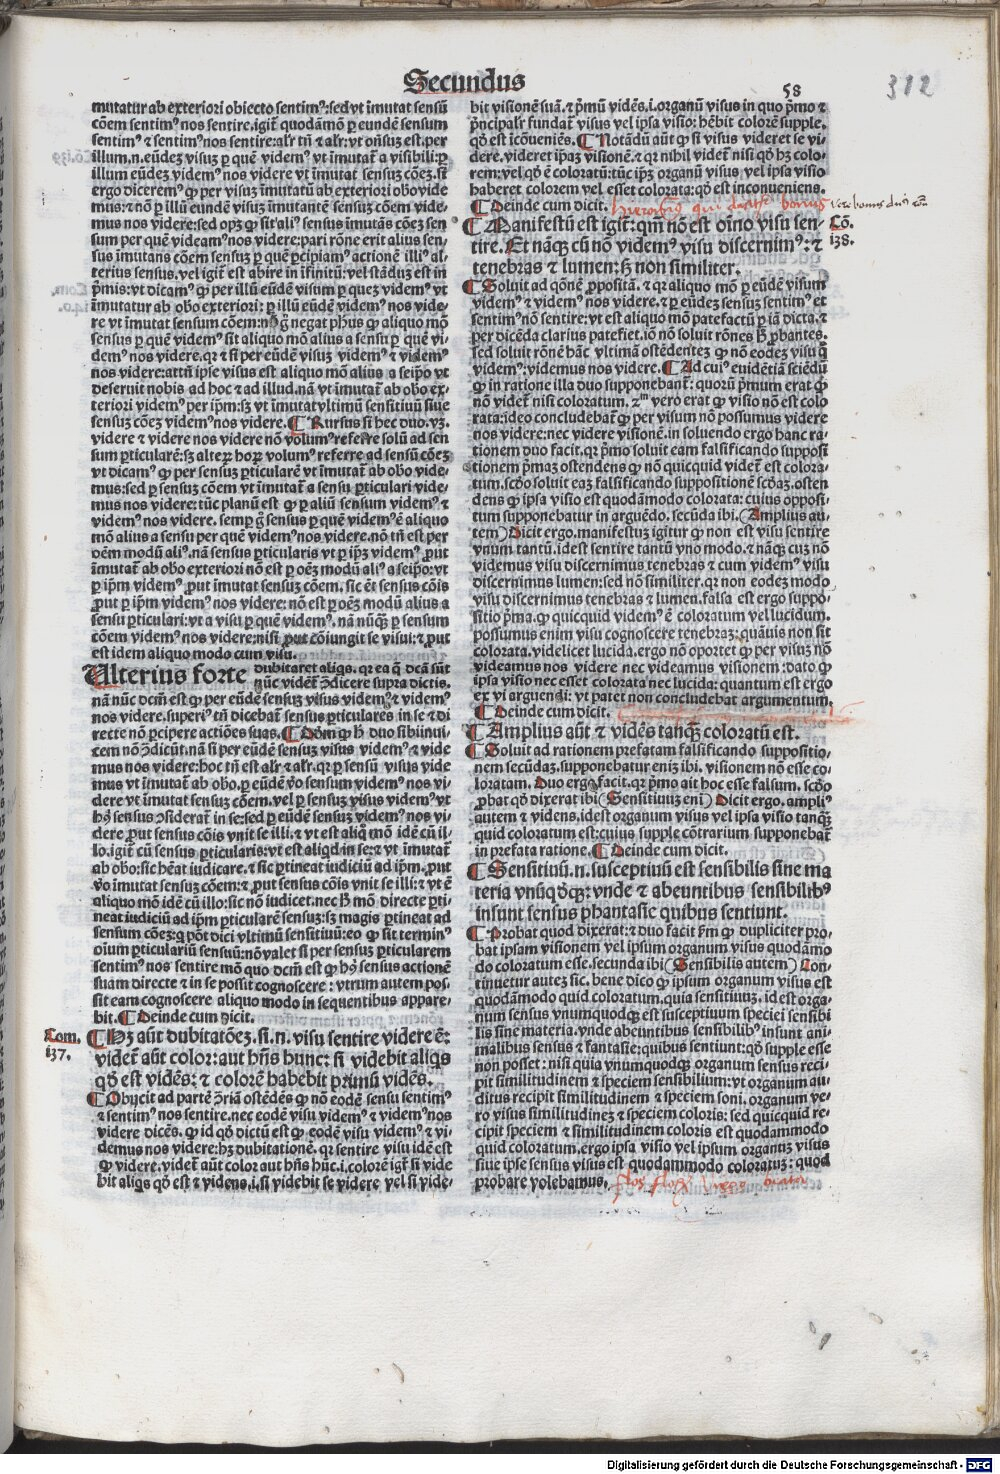 Secundus
58
312
mutatur ab exteriori obiecto sentimꝰ: sed vt īmutat sensū
cōem sentimꝰ nos sentire. igit̄ quodāmō ꝑ eundē sensum
sentimꝰ ⁊ sentimꝰ nos sentire: alr̄ tn̄ ⁊ alr̄: vt on̄suꝫ est. per
illum .n. eūdeꝫ visuꝫ ꝑ quē videmꝰ vt īmutat̄ a visibili: ꝑ
illum eūdeꝫ videmꝰ nos videre vt īmutat sensuꝫ cōeꝫ. si
ergo dicerem꯰ ꝙ per visuꝫ īmutatū ab exteriori obo vide
mus: ⁊ nō ꝑ illū eundē visuꝫ īmutantē sensuꝫ cōem vide-
mus nos videre: sed opꝫ ꝙ sit aliꝰ sensus īmutās cōeꝫ sen
sum per quē videamꝰ nos videre: pari rōne erit alius sen-
sus īmutans cōem sensuꝫ ꝑ quē ꝑcipiamꝰ actionē illiꝰ al-
terius sensus. vel igit̄ est abire in īfinitū: vel stāduꝫ est in
p̄mis: vt dicamꝰ ꝙ per illū eūdē visum ꝑ quez videmꝰ vt
īmutatur ab obo exteriori: ꝑ illū eūdē videmꝰ nos vide-
re vt īmutat sensum cōem: nō g̊ negat ph̄us ꝙ aliquo mō
sensus ꝑ quē videmꝰ sit aliquo mō alius a sensu ꝑ quē vi-
demꝰ nos videre. qr ⁊ si per eūdē visuꝫ videmꝰ ⁊ videmꝰ
nos videre: attn̄ ipse visus est aliquo mō alius a seip̄o vt
deseruit nobis ad hoc ⁊ ad illud. nā vt īmutat̄ ab obo ex-
teriori videmꝰ per ip̄m: sꝫ vt īmutat vltimū sensitiuū siue
sensuꝫ cōeꝫ videmꝰ nos videre. ¶ Rursus si hec duo. vꝫ.
videre ⁊ videre nos videre nō volumꝰ referre solū ad sen
sum ꝑticularē: sꝫ alteꝝ hoꝝ volumꝰ referre ad sensū cōeꝫ
vt dicamꝰ ꝙ per sensuꝫ ꝑticularē vt īmutat̄ ab obo vide-
mus: sed ꝑ sensuꝫ cōem vt īmutat̄ a sensu ꝑticulari vide-
mus nos videre: tūc planū est ꝙ ꝑ aliū sensum videmꝰ ⁊
videmꝰ nos videre. semꝑ g̊ sensus ꝑ quē videmꝰ ē aliquo
mō alius a sensu per quē videmꝰ nos videre. nō tn̄ est per
oēm modū aliꝰ. nā sensus ꝑticularis vt ꝑ ip̄ꝫ videmꝰ ꝓut
īmutat̄ ab obo exteriori nō est ꝑ oēꝫ modū aliꝰ a seip̄o: vt
ꝑ ip̄m videmꝰ ꝓut īmutat sensuꝫ cōem. sic et̄ sensus cōis
ꝓut ꝑ ip̄m videmꝰ nos videre: nō est ꝑ oēꝫ modū alius a
sensu ꝑticulari: vt a visu ꝑ quē videmꝰ. nā nūqꝫ ꝑ sensum
cōem videmꝰ nos videre: nisi ꝓut cōiungit se visui: ⁊ ꝓut
est idem aliquo modo cum visu.
Ulterius forte dubitaret aliqs. qr ea q̄ dcā sūt
nūc vident̄ ꝯdicere supra dictis.
nā nūc dcm̄ est ꝙ per eūdē sensuꝫ visus videmꝰ ⁊ videmꝰ
nos videre. superiꝰ tn̄ dicebat̄ sensus ꝑticulares in se ⁊ di
recte nō ꝑcipere actiōes suas. ¶ Dōm ꝙ h̄ duo sibiinui-
cem nō ꝯdicūt. nā si per eūdē sensuꝫ visus videmꝰ ⁊ vide
mus nos videre: hoc tn̄ est alr̄ ⁊ alr̄. qr ꝑ sensū visus vide
mus vt īmutat̄ ab obo. ꝑ eūdē v̄o sensum videmꝰ nos vi-
dere vt īmutat sensuꝫ cōem. vel ꝑ sensuꝫ visus videmꝰ vt
hꝰ sensus ꝯsiderat̄ in se: sed ꝑ eūdē sensuꝫ videmꝰ nos vi-
dere ꝓut sensus cōis vnit se illi. ⁊ vt est aliq̊ mō idē cū il-
lo. igit̄ cū sensus ꝑticularis: vt est aliqd in se: ⁊ vt īmutat̄
ab obo: sic heat iudicare. ⁊ sic ꝑtineat iudiciū ad ip̄m. ꝓut
v̄o īmutat sensuꝫ cōem: ⁊ ꝓut sensus cōis vnit se illi: ⁊ vt ē
aliquo mō idē cū illo: sic nō iudicet. nec h̄ mō directe ꝑti-
neat iudiciū ad ip̄m ꝑticularē sensuꝫ: sꝫ magis ꝑtineat ad
sensum cōeꝫ: q̄ pōt dici vltimū sensitiuū: eo ꝙ sit terminꝰ
oīum ꝑticulariū sensuū: nō valet si per sensuꝫ ꝑticularem
sentimꝰ nos sentire mō quo dcm̄ est ꝙ hꝰ sensus actionē
suam directe ⁊ in se possit cognoscere: vtrum autem pos-
sit eam cognoscere aliquo modo in sequentibus appare-
bit. ¶ Deinde cum dicit.
Com.
137.
¶ Hꝫ aūt dubitatōeꝫ. si .n. visu sentire videre ē:
videt̄ aūt color: aut hn̄s hunc: si videbit aliqs
qd̄ est vidēs: ⁊ colorē habebit pꝛimū vidēs.
¶ Obijcit ad partē ꝯriā ostēdēs ꝙ nō eodē sensu sentimꝰ
⁊ sentimꝰ nos sentire. nec eodē visu videmꝰ ⁊ videmꝰ nos
videre dicēs. ꝙ id qd̄ dictū est ꝙ eodē visu videmꝰ ⁊ vi-
demus nos videre: hꝫ dubitationē. qr sentire visu idē est
ꝙ videre. videt̄ aūt color aut hn̄s hūc. i. colorē igit̄ si vide
bit aliqs qd̄ est ⁊ videns. i. si videbit se videre vel si vide-
bit visionē suā. ⁊ p̄mū vidēs. i. organū visus in quo p̄mo ⁊
p̄ncipalr̄ fundat̄ visus vel ipsa visio: hēbit colorē supple.
qd̄ est icōueniēs. ¶ Notādū aūt ꝙ si visus videret se vi-
dere. videret ip̄aꝫ visionē. ⁊ qr nihil videt̄ nisi qd̄ hꝫ colo-
rem: vel qd̄ ē coloratū: tūc ip̄ꝫ organū visus vel ipsa visio
haberet colorem vel esset colorata: qd̄ est inconueniens.
¶ Deinde cum dicit.
Cō.
138.
¶ Manifestū est igit̄: qm̄ nō est oīno visu sen-
tire. Et nāqꝫ cū nō videmꝰ visu discernimꝰ: ⁊
tenebras ⁊ lumen: sꝫ non similiter.
¶ Soluit ad q̄onē ꝓpositā. ⁊ qr aliquo mō ꝑ eūdē visum
videmꝰ ⁊ videmꝰ nos videre. ⁊ ꝑ eūdeꝫ sensuꝫ sentimꝰ et
sentimꝰ nō sentire: vt est aliquo mō patefactū ꝑ iā dicta. ⁊
per dicēda clarius patefiet. iō nō soluit rōnes h̄ ꝓbantes.
sed soluit rōnē hāc vltimā ostēdenteꝫ ꝙ nō eodeꝫ visu q̊
videmꝰ: videmus nos videre. ¶ Ad cuiꝰ euidētiā sciēdū
ꝙ in ratione illa duo supponebant̄: quoꝝ p̄mum erat ꝙ
nō videt̄ nisi coloratum. 2ᵐ vero erat ꝙ visio nō est colo
rata: ideo concludebat̄ ꝙ per visum nō possumus videre
nos videre: nec videre visionē. in soluendo ergo hanc ra-
tionem duo facit. qr p̄mo soluit eam falsificando supposi
tionem p̄maꝫ ostendens ꝙ nō quicquid videt̄ est colora-
tum. scd̄o soluit eaꝫ falsificando suppositionē scd̄aꝫ. osten
dens ꝙ ipsa visio est quodāmodo colorata: cuius opposi-
tum supponebatur in arguēdo. secūda ibi. (Amplius au-
tem) Dicit ergo. manifestuꝫ igitur ꝙ non est visu sentire
vnum tantū. idest sentire tantū vno modo. ⁊ nāqꝫ cuꝫ nō
videmus visu discernimus tenebras ⁊ cum videmꝰ visu
discernimus lumen: sed nō similiter. qr non eodeꝫ modo
visu discernimus tenebras ⁊ lumen. falsa est ergo suppo-
sitio p̄ma. ꝙ quicquid videmꝰ ē coloratum vel lucidum.
possumus enim visu cognoscere tenebraꝫ: quāuis non sit
colorata. videlicet lucida. ergo nō oportet ꝙ per visuꝫ nō
videamus nos videre nec videamus visionem: dato ꝙ
ipsa visio nec esset colorata nec lucida: quantum est ergo
ex vi arguendi: vt patet non concludebat argumentum.
¶ Deinde cum dicit.
¶ Amplius aūt ⁊ vidēs tanqꝫ coloratū est.
¶ Soluit ad rationem prefatam falsificando suppositio-
nem secūdaꝫ. supponebatur eniꝫ ibi. visionem nō esse co-
loratam. Duo ergo facit. qr p̄mo ait hoc esse falsum. scd̄o
ꝓbat qd̄ dixerat ibi (Sensitiuuꝫ eni) Dicit ergo. ampliꝰ
autem ⁊ videns. idest organum visus vel ipsa visio tanqꝫ
quid coloratum est: cuius supple cōtrarium supponebat̄
in prefata ratione. ¶ Deinde cum dicit.
¶ Sensitiuū .n. susceptiuū est sensibilis sine ma
teria vnūqd̄qꝫ: vnde ⁊ abeuntibus sensibilibꝰ
insunt sensus phantasie quibus sentiunt.
¶ Probat quod dixerat: ⁊ duo facit ẜm ꝙ dupliciter pro-
bat ipsam visionem vel ipsum organum visus quodāmo
do coloratum esse. secunda ibi (Sensibilis autem) Con-
tinuetur autez sic. bene dico ꝙ ipsum organum visus est
quodāmodo quid coloratum. quia sensitiuuꝫ. idest orga-
num sensus vnumquodqꝫ est susceptiuum speciei sensibi
lis sine materia. vnde abeuntibus sensibilibꝰ insunt ani-
malibus sensus ⁊ fantasie: quibus sentiunt: qd̄ supple esse
non posset: nisi quia vnumquodqꝫ organum sensus reci-
pit similitudinem ⁊ speciem sensibilium: vt organum au-
ditus recipit similitudinem ⁊ speciem soni. organum ve-
ro visus similitudineꝫ ⁊ speciem coloris: sed quicquid re-
cipit speciem ⁊ similitudinem coloris est quodammodo
quid coloratum. ergo ipsa visio vel ipsum organuꝫ visus
siue ipse sensus visus est quodammodo coloratuꝫ: quod
probare volebamus.
Digitalisierung gefördert durch die Deutsche Forschungsgemeinschaft - DFG